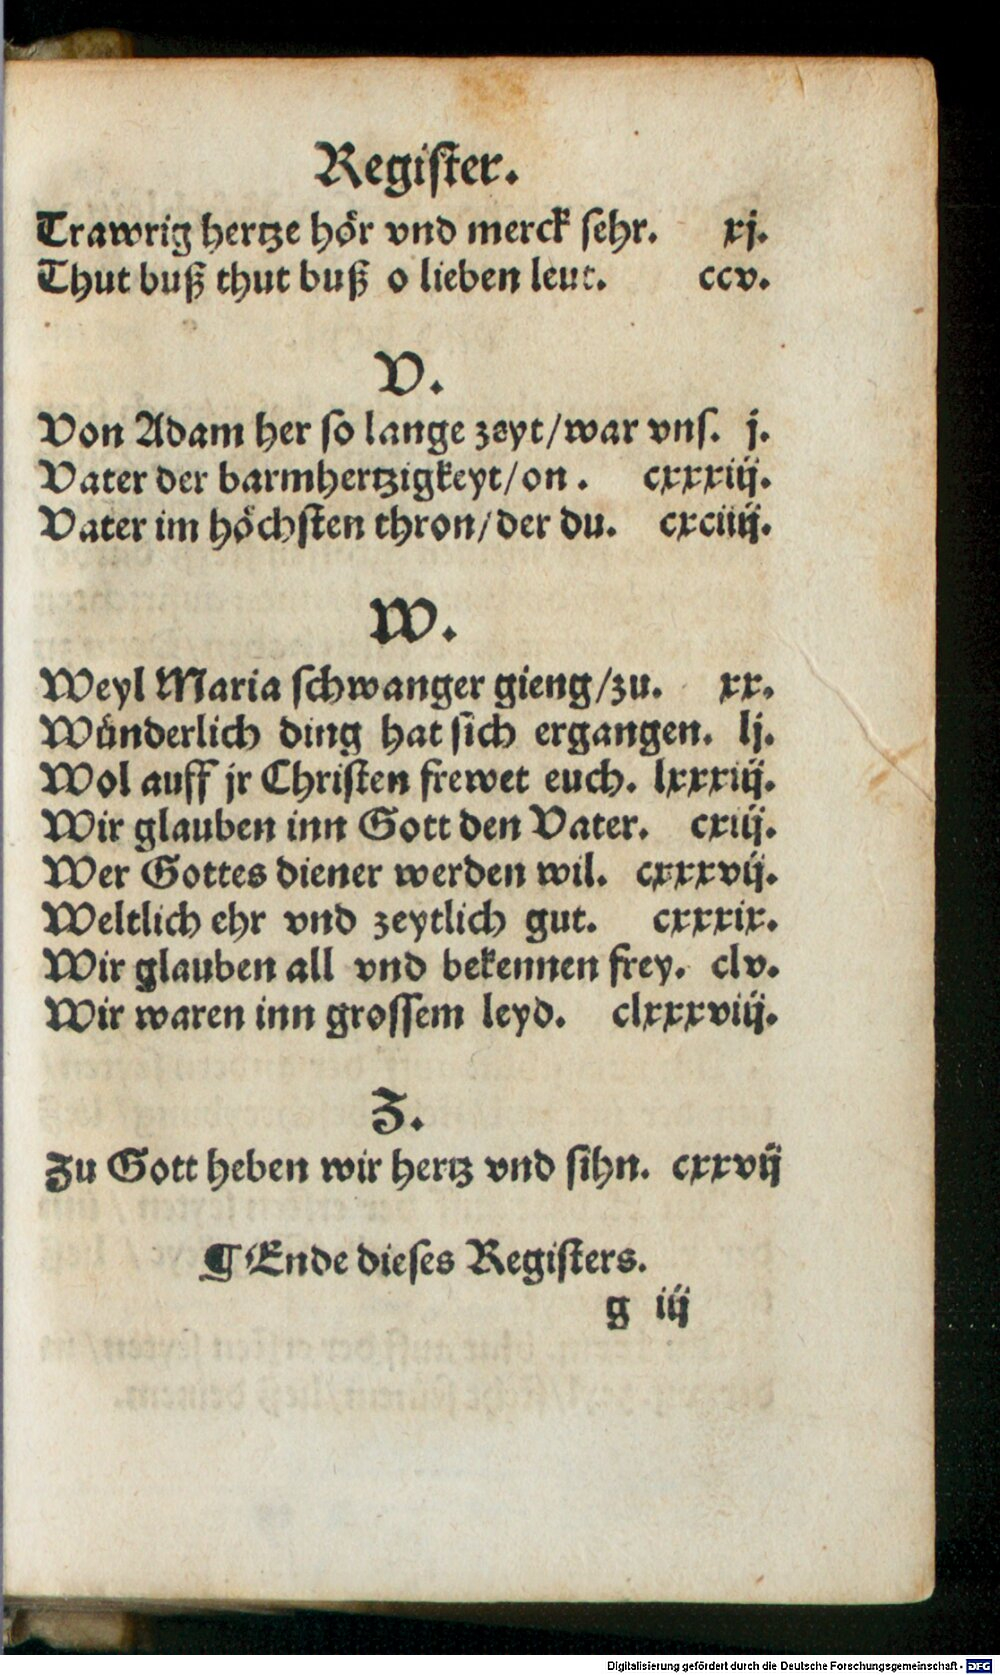 Register.
Trawrig hertze hör vnd merck sehr. xj.
Thut buß thut buß o lieben leut. ccv.
V.
Von Adam her so lange zeyt/war vns. j.
Vater der barmhertzigkeyt/on. cxxxiij.
Vater im höchsten thron/der du. cxciiij.
W.
Weyl Maria schwanger gieng/zu. xx.
Wünderlich ding hat sich ergangen. lj.
Wol auff jr Christen frewet euch. lxxxiij.
Wir glauben inn Gott den Vater. cxiij.
Wer Gottes diener werden wil. cxxxvij.
Weltlich ehr vnd zeytlich gut. cxxxix.
Wir glauben all vnd bekennen frey. clv.
Wir waren inn grossem leyd. clxxxviij.
Z.
Zu Gott heben wir hertz vnd sihn. cxxvij
¶ Ende dieses Registers.
g iij
Digitalisierung gefördert durch die Deutsche Forschungsgemeinschaft - DFG